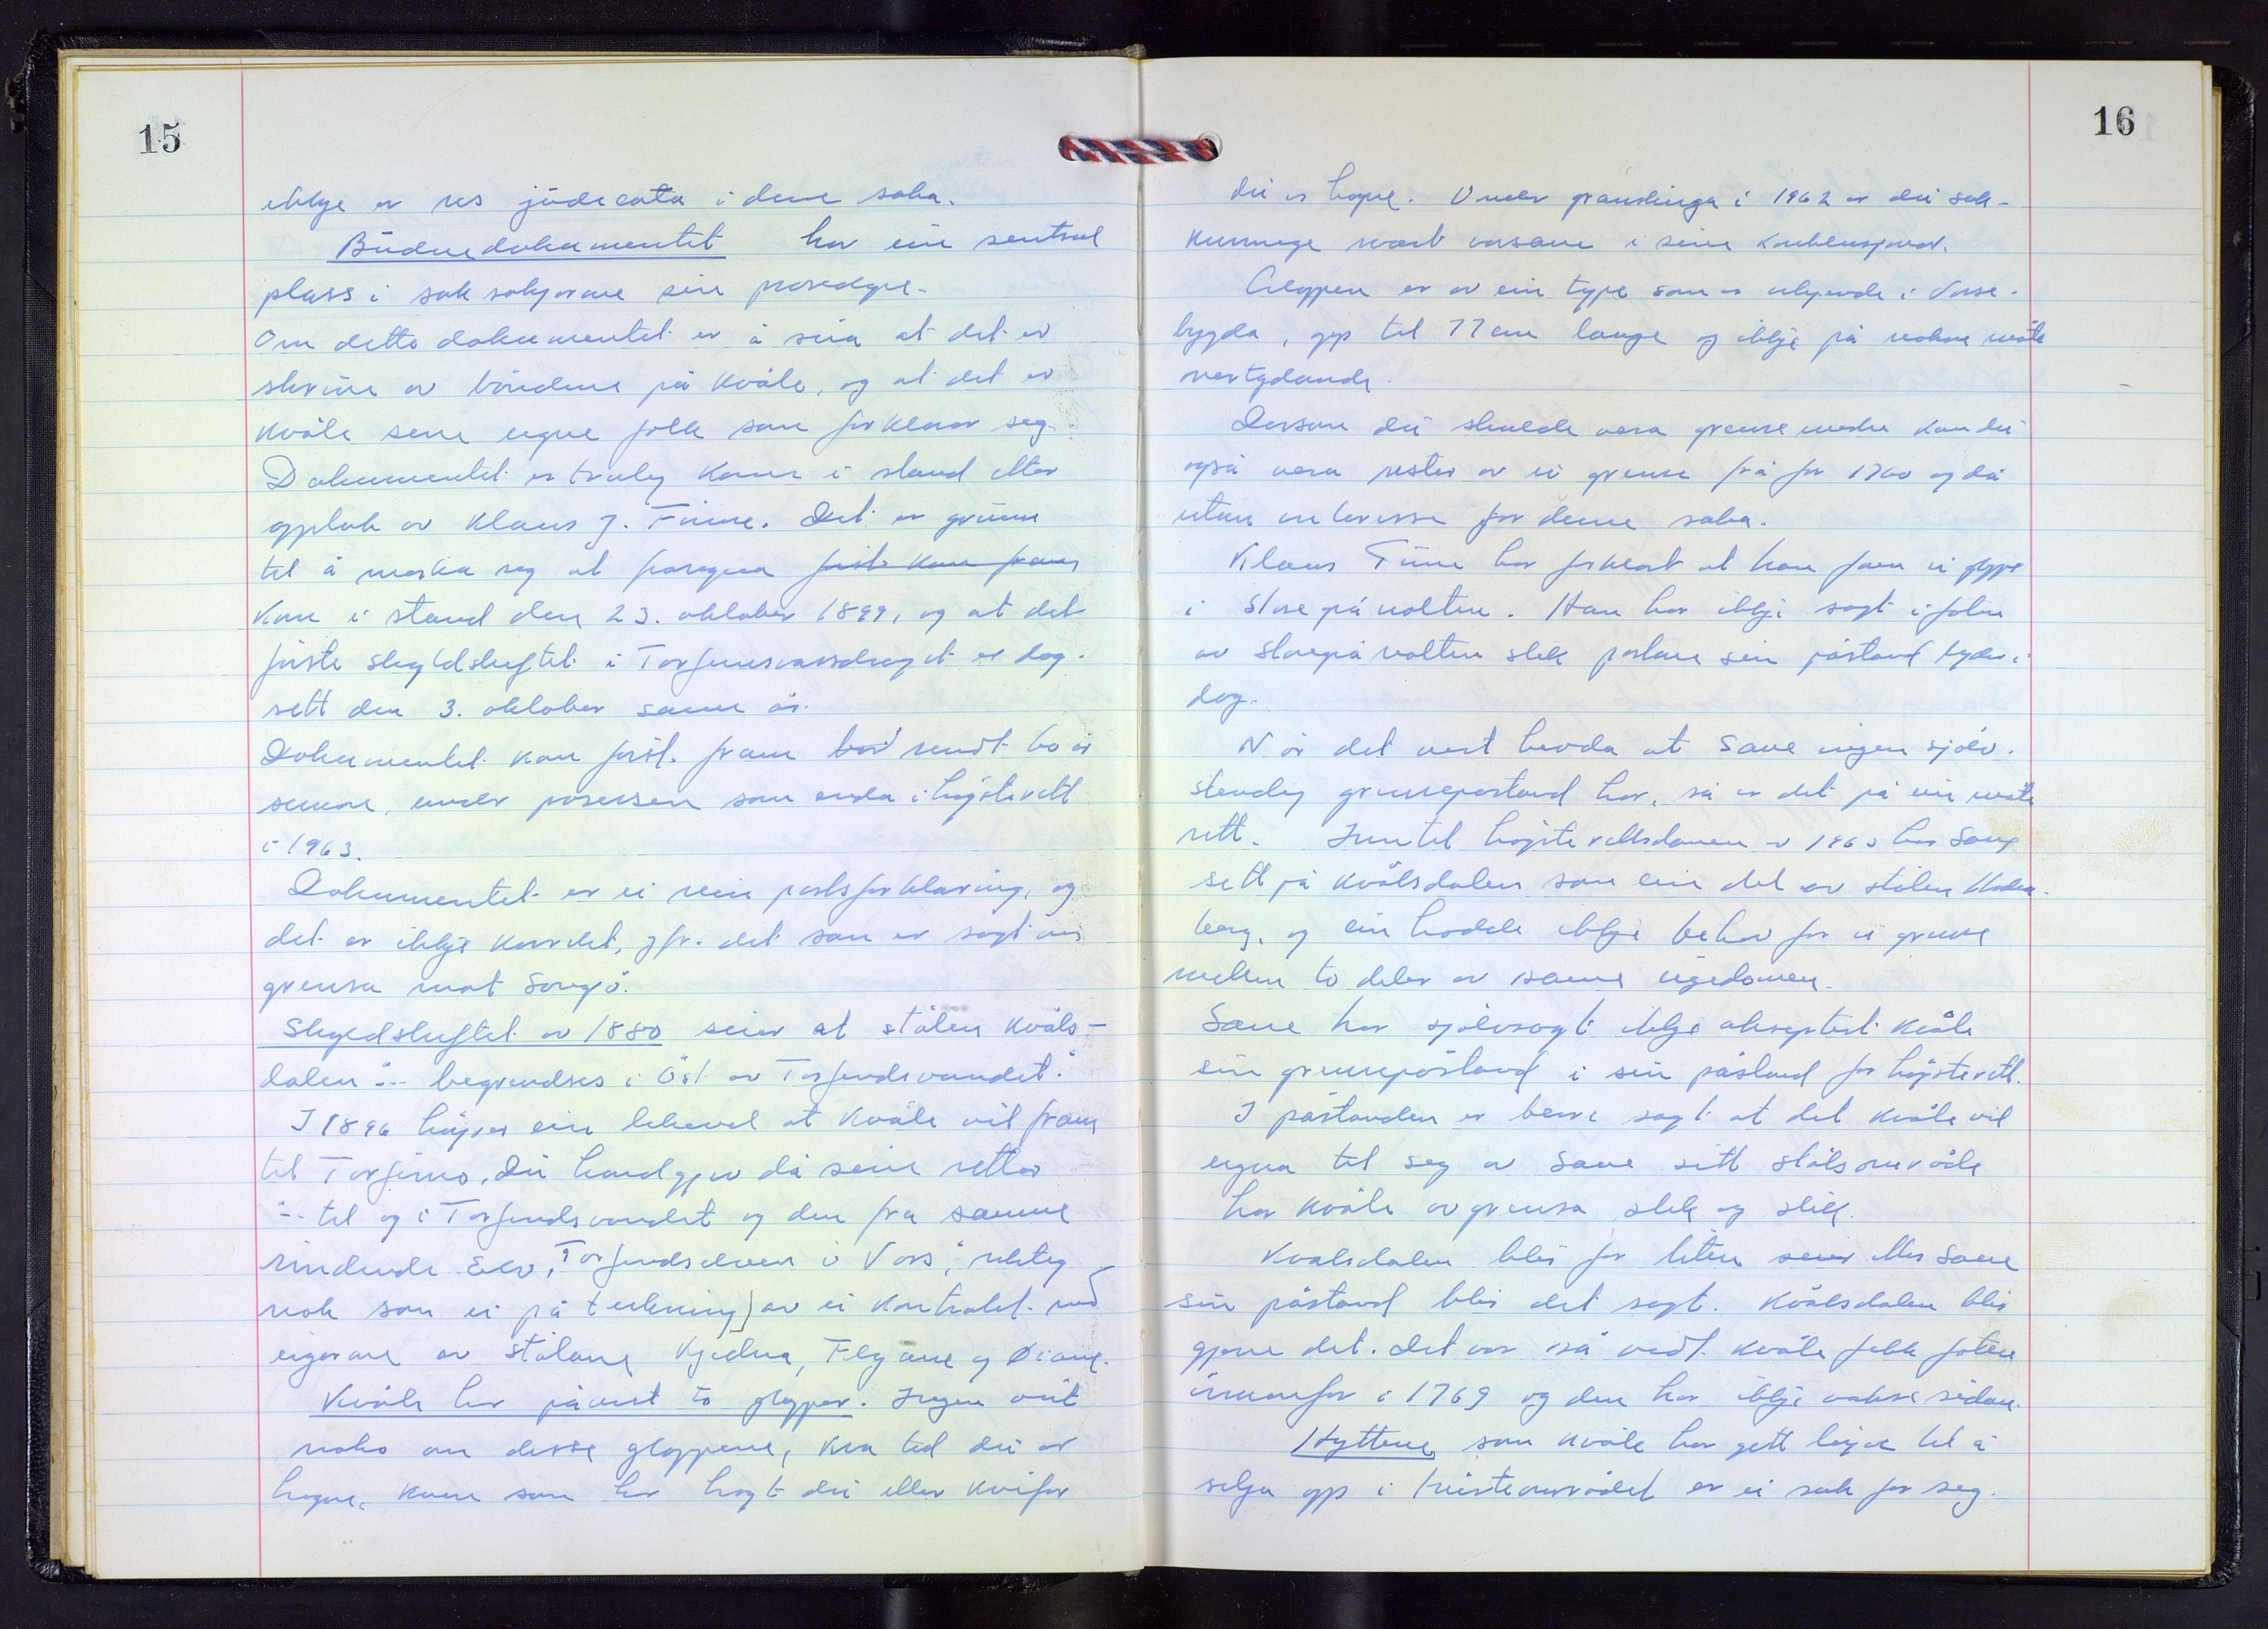 15
ikkje er res judicata i denne saka.
Budnedokumentet har ein sentral
plass i saksøkjarane sin prosedyre.
Om dette dokumentet er å seia at det er
skrive av bøndene på Kvåle, og at det er
Kvåle sine eigne folk som forklarar seg.
Dokumentet er truleg kome i stand etter
opptak av Klaus J. Finne. Det er grunn
til å merka seg at pasegna først kom fram
kom i stand den 23. oktober 1899, og at det
første skyldskiftet i Torfinnsvassdraget er dag-
sett den 3. oktober same år.
Dokumentet kom først fram rundt 60 år
seinare, under prosessen som enda i högsterett
i 1963.
Dokumentet er ei rein partsforklaring, og
det er ikkje korrekt, jfr. det som er sagt om
grensa mot Songo.
Skyldskiftet av 1880 seier at stølen Kvåls-
dalen "- begrendses i Öst av Torfindsvandet."
I 1896 hevder ein likevel at Kvåle vil fram
til Torfinno. Dei handgjev då sine rettar
"- til og i Torfindsvandet og den fra samme
rindende Elv, Torfindselven i Vors," rikteg
nok som ei på teikning) av ei kontrakt med
eigarane av stølane Kjedna, Flyane og Øiane.
Kvåle har påvist to gloppar. Ingen veit
noko om desse gloppene, kva tid dei er
hogne, kven som har hogt dei eller kvifor
16
dei er hogne. Under granskinga i 1962 er dei sak-
kunnige svært varsame i sine konklusjonar.
Gloppen er av ein type som er ukjende i Vosse-
bygda, opp til 77 cm lange og ikkje på nokon måte
overtydande.
Dersom dei skulde vera grensemerke kan dei
også vera rester av ei grense frå før 1760 og då
utan interesse for denne saka.
Klaus Finne har forklart at han fann ei gloppe
i Storepånolten. Han har ikkje sagt i foten
av storepånolten slik partane sin påstand lyder i
dag.
Når det vert hevda at Saue ingen sjølv-
stendig grensepåstand har, så er det på ein måte
rett. Inntil högsterettsdomen i 1963 har Saue
sett på Kvålsdalen som ein del av stølen
berg, og ein hadde ikkje behov for ei grense
mellom to deler av same eigedomen.
Saue har sjølvsagt ikkje akseptert Kvåle
sin grensepåstand i sin påstand for högsterett.
I påstanden er berre sagt at det Kvåle vil
eigna til seg av Saue sitt stølsområde
har Kvåle avgrensa slik og slik.
Kvålsdalen blir for liten seier etter Saue
sin påstand blir det sagt. Kvålsdalen blir
gjerne det. Det var så vidt Kvåle fekk foten
innanfor i 1769 og den har ikkje vakse sidan.
Hyttene som Kvåle har gett løyve til å
setja opp i tvisteområdet er ei sak for seg.